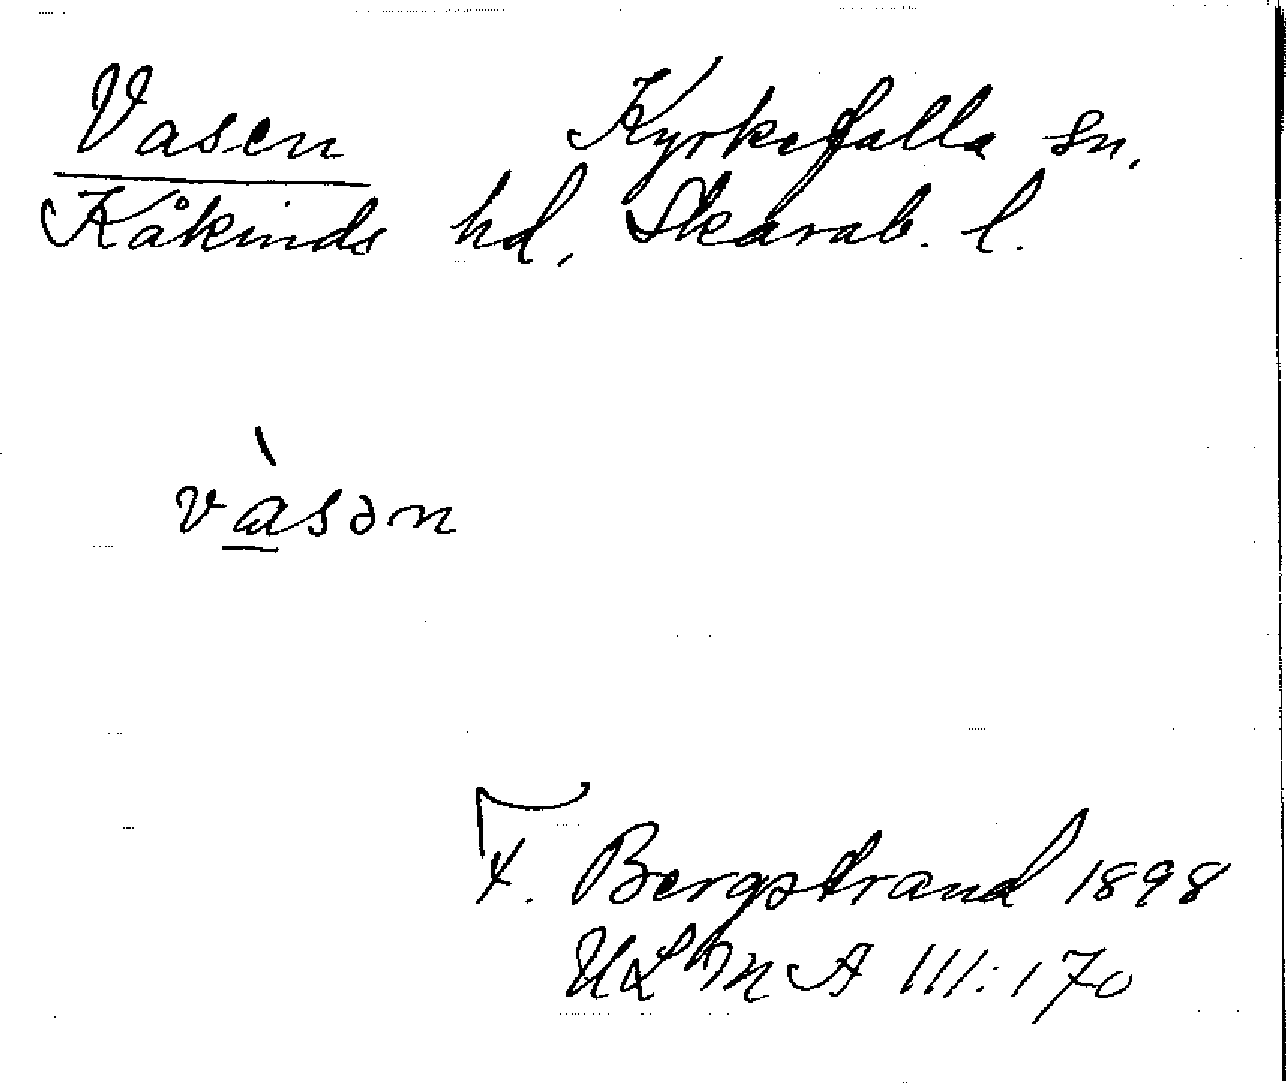 Vasen Kyrkefalla sn.
Kåkinds hd, Skarab. l.
vàsən
F. Bergstrand 1898
ULMA 111:170